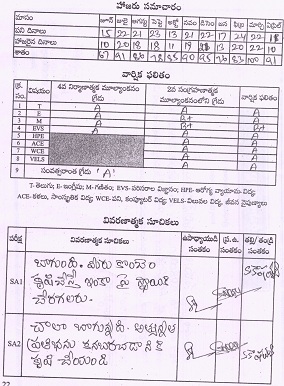 హాజరు సమాచారం
మాసం జూన్ జూలై ఆగ సెప్టె అక్టో నవం డిసెం జన ఫిబ్ర మార్చి ఏప్రిల్
పని దినాలు 15 22 21 23 13 21 22 17 24 22
హాజరైన దినాలు 10 20 18 18 11 19 13 20 22 10
శాతం 67 91
వార్షిక ఫలితం
క్ర. సం. విషయం 4వ నిర్మాణాత్మక మూల్యాంకనం గ్రేడు 2వ సంగ్రహణాత్మక మూల్యాంకనంలోని గ్రేడు వార్షిక ఫలితం
1 T A A A
2 E A B+ A
3 M A A A
4 EVS A B+ A
5 HPE A A
6 ACE A A
7 WCE A A
8 VELS A A
9 సంవత్సరాంత గ్రేడు 'A'
T-తెలుగు; E-ఇంగ్లీషు; M-గణితం; EVS-పరిసరాల విజ్ఞానం; HPE-ఆరోగ్య వ్యాయామ విద్య;
ACE-కళలు, సాంస్కృతిక విద్య; WCE-పని, కంప్యూటర్ విద్య; VELS-విలువల విద్య, జీవన నైపుణ్యాలు
వివరణాత్మక సూచికలు
పరీక్ష వివరణాత్మక సూచికలు ఉపాధ్యాయుడి సంతకం ప్ర.ఉ. సంతకం తల్లి/తండ్రి సంతకం
SA1 బాగుంది. మరి కొంచెం
కృషి చేస్తే ఇంకా పై స్థాయికి
చేరగలరు.
SA2 చాలా బాగున్నది. అత్యున్నత
ప్రతిభను కనబరచడానికి
కృషి చేయండి
22